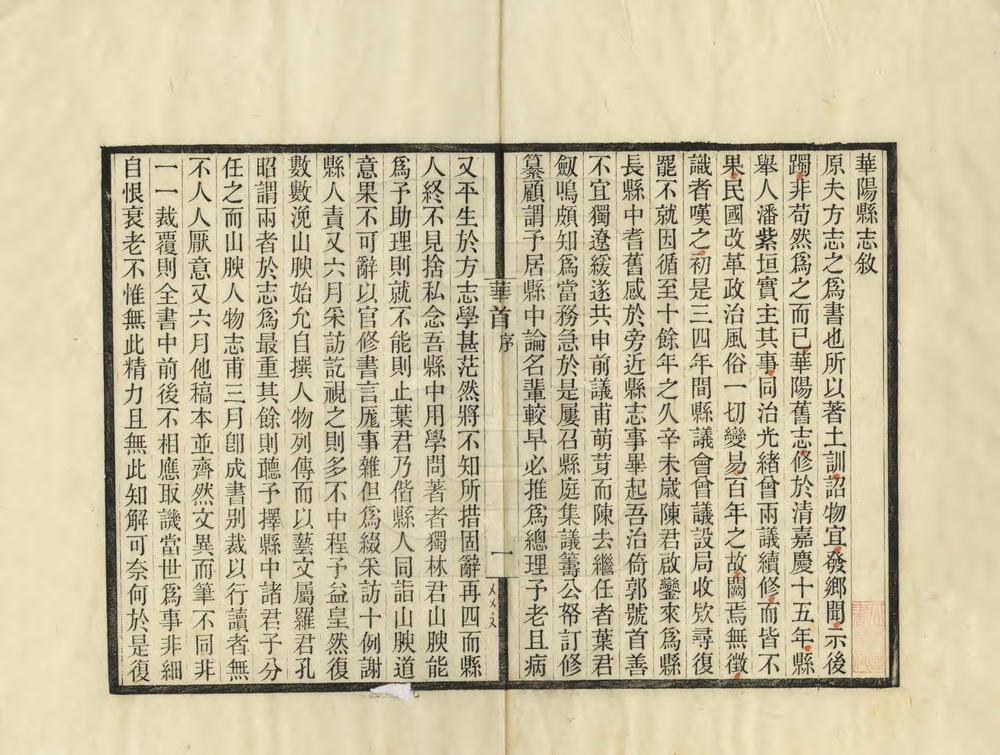 華陽縣志敘
原夫方志之爲書也所以著土訓詔物宜發鄉聞示後
躅非苟然爲之而已華陽舊志修於清嘉慶十五年縣
舉人潘紫垣實主其事同治光緒曾兩議續修而皆不
果民國改革政治風俗一切變易百年之故闕焉無徵
識者嘆之初是三四年間縣議會曾議設局收欵尋復
罷不就因循至十餘年之久辛未歲陳君啟鑾來爲縣
長縣中耆舊感於旁近縣志事畢起吾治倚郭號首善
不宜獨遼緩遂共申前議甫萌芽而陳去繼任者葉君
劔鳴頗知爲當務急於是屢召縣庭集議籌公帑訂修
纂顧謂予居縣中論名輩較早必推爲總理予老且病
華首
序
一
又平生於方志學甚茫然將不知所措固辭再四而縣
人終不見捨私念吾縣中用學問著者獨林君山腴能
爲予助理則就不能則止葉君乃偕縣人同詣山腴道
意果不可辭以官修書言厖事雜但爲綴采訪十例謝
縣人責又六月采訪訖視之則多不中程予益皇然復
數數浼山腴始允自撰人物列傳而以藝文屬羅君孔
昭謂兩者於志爲最重其餘則聽予擇縣中諸君子分
任之而山腴人物志甫三月卽成書別裁以行讀者無
不人人厭意又六月他稿本並齊然文異而筆不同非
一一裁覆則全書中前後不相應取譏當世爲事非細
自恨衰老不惟無此精力且無此知解可奈何於是復